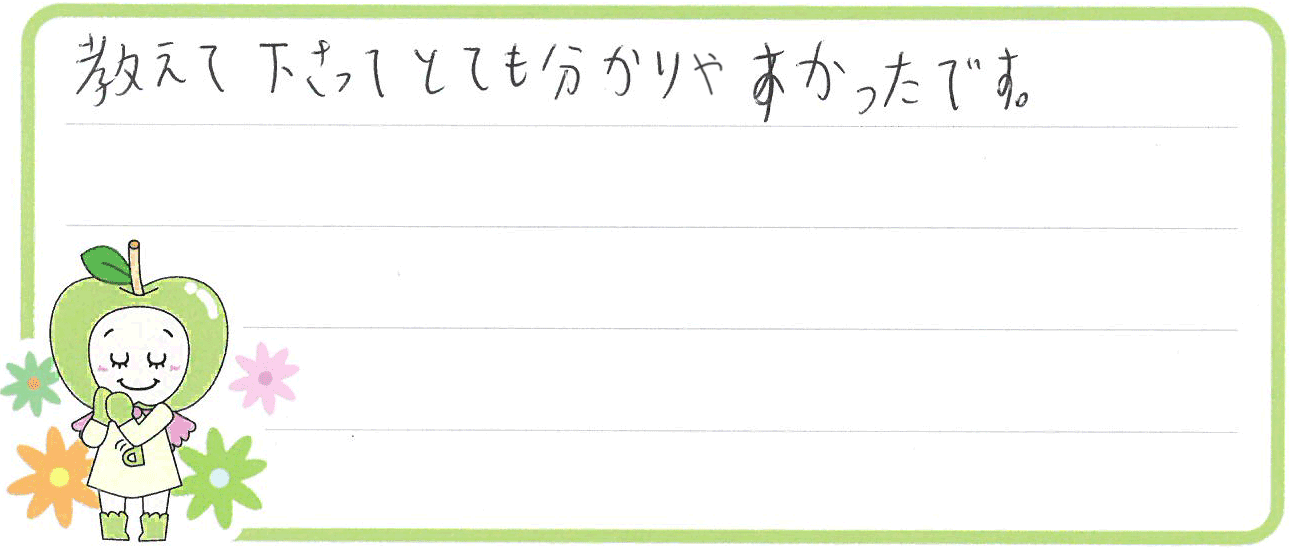 教えて下さってとても分かりやすかったです。